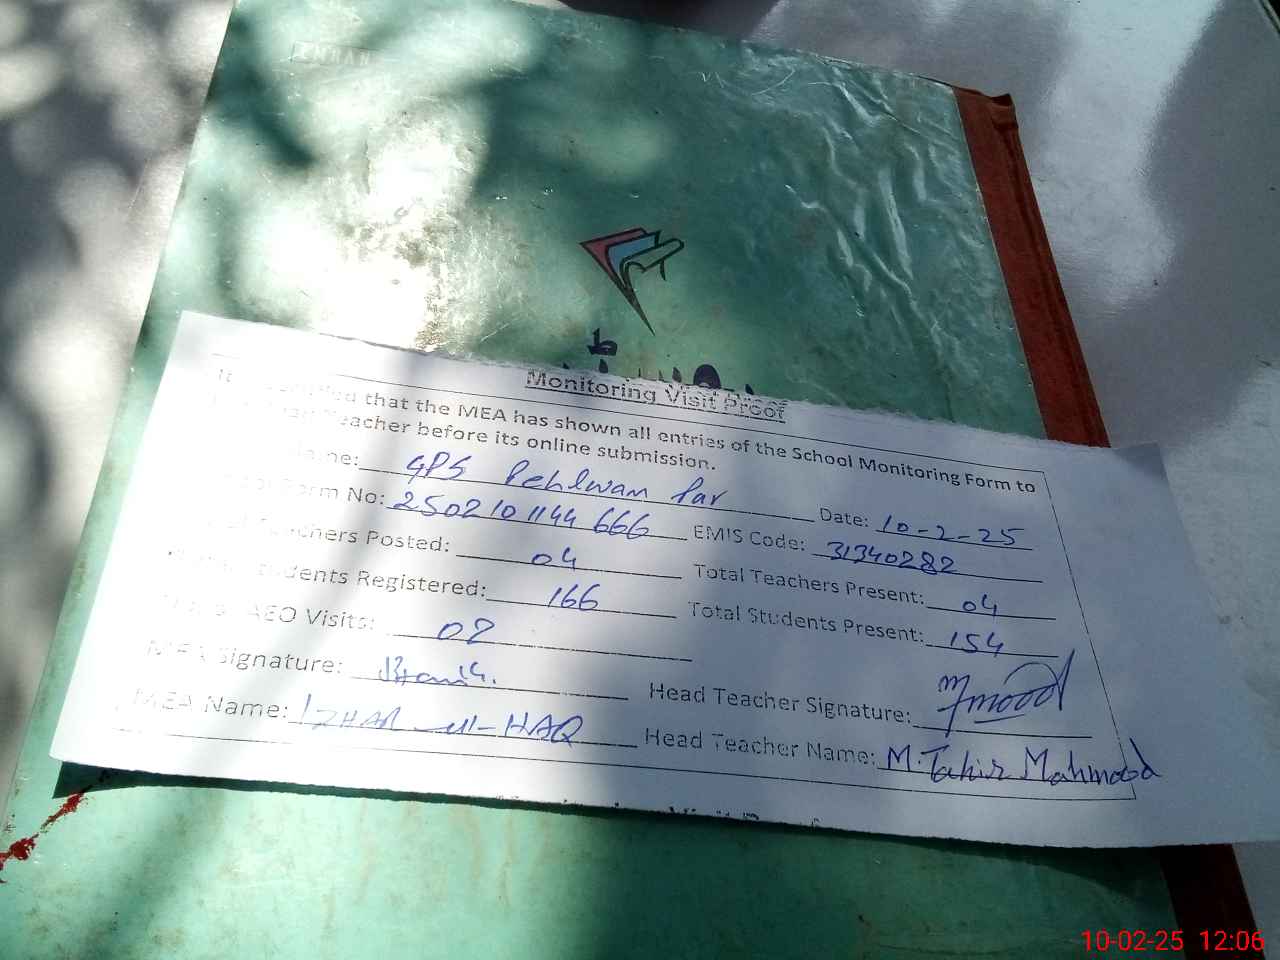 Monitoring Visit Proof
that the MEA has shown all entries of the School Monitoring Form to
Teacher before its online submission.
Name: GPS Pehlwan Par Date: 10-2-25
Form No: 2502101144666 EMIS Code: 31340282
Teachers Posted: 04 Total Teachers Present: 04
Students Registered: 166 Total Students Present: 154
AEO Visits: 02
MEA Signature: Head Teacher Signature:
MEA Name: IZHAR ul-HAQ Head Teacher Name: M. Tahir Mahmood
10-02-25 12:06